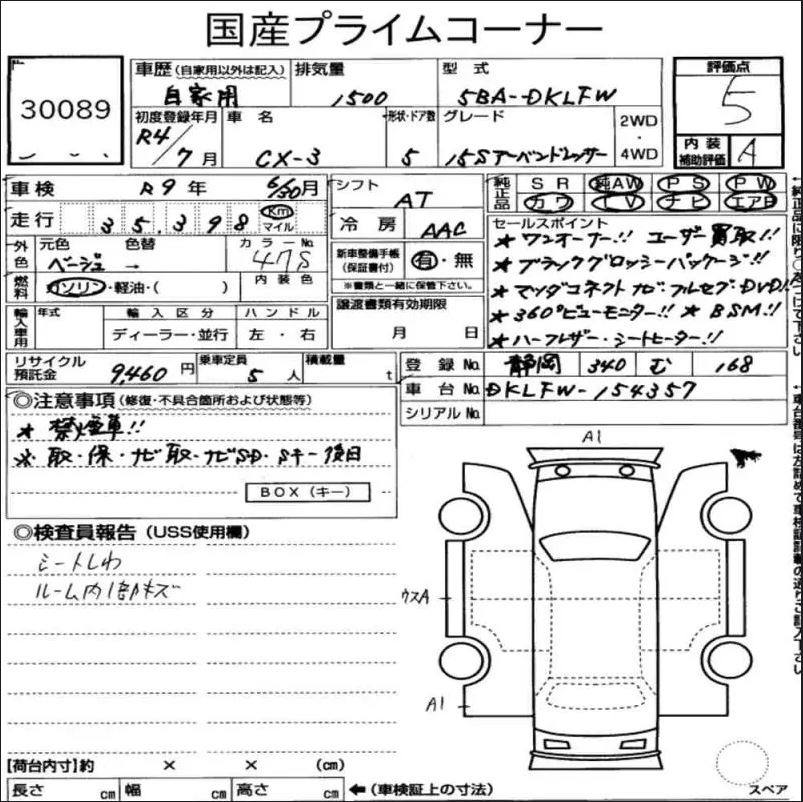 国産プライムコーナー
30089
車歴(自家用以外は記入) 自家用
排気量 1500
型式 5BA-DKLFW
評価点 5
初度登録年月 R4/7月
車名 CX-3
形状・ドア数 5
グレード 15Sアーバンドレッサー
2WD・4WD
内装補助評価 A
車検 R9年 6/30月
シフト AT
純正品 SR 純AW PS PW
カワ TV ナビ エアB
走行 35,398 Km マイル
冷房 AAC
外色 元色 ベージュ 色替 →
カラーNo. 47S
新車整備手帳(保証書付) 有・無
※書類と一緒に保管下さい。
セールスポイント
★ワンオーナー!! ユーザー買取!!
★ブラックグロッシーパッケージ!!
★マツダコネクトナビフルセグDVD!!
★360°ビューモニター!! ★BSM!!
★ハーフレザー・シートヒーター!!
燃料 ガソリン・軽油・( )
内装色
輸入車用 年式 輸入区分 ハンドル
ディーラー・並行 左・右
譲渡書類有効期限
月 日
リサイクル預託金 9,460円
乗車定員 5人
積載量 t
登録No. 静岡 340 む 168
車台No. DKLFW-154357
シリアルNo.
◎注意事項(修復・不具合箇所および状態等)
★禁煙車!!
※取・保・ナビ取・ナビSD・Sキー後日
BOX(キー)
◎検査員報告(USS使用欄)
シートしわ
ルーム内1部キズ
A1
ウスA
A1
【荷台内寸】約 × × (cm)
長さ cm 幅 cm 高さ cm
←(車検証上の寸法)
スペア